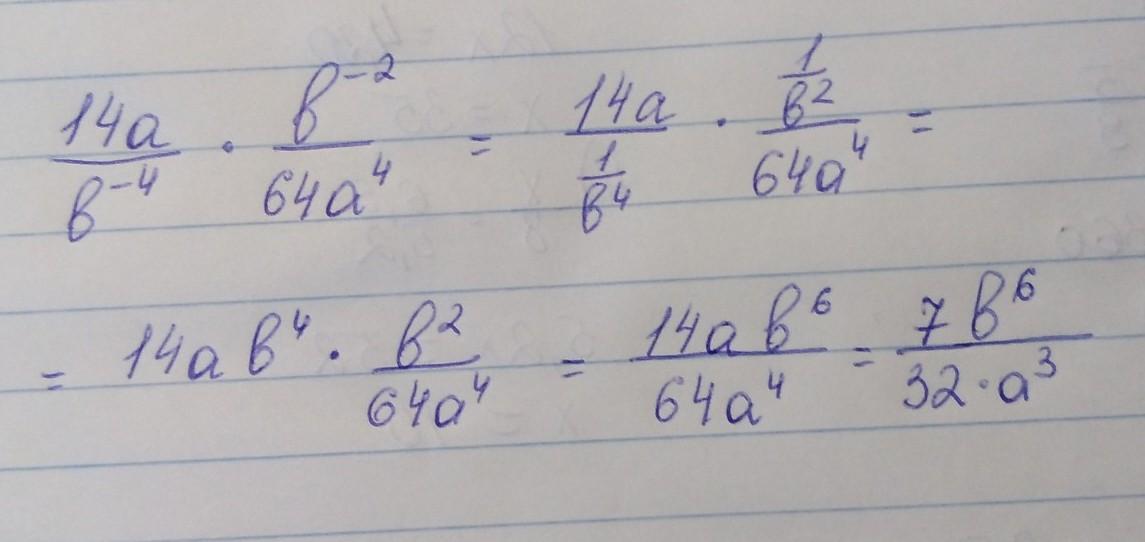 14a/в⁻⁴ · в⁻²/64a⁴ = 14a/(1/в⁴) · (1/в²)/64a⁴ =
= 14a в⁴ · в²/64a⁴ = 14a в⁶/64a⁴ = 7в⁶/32·a³